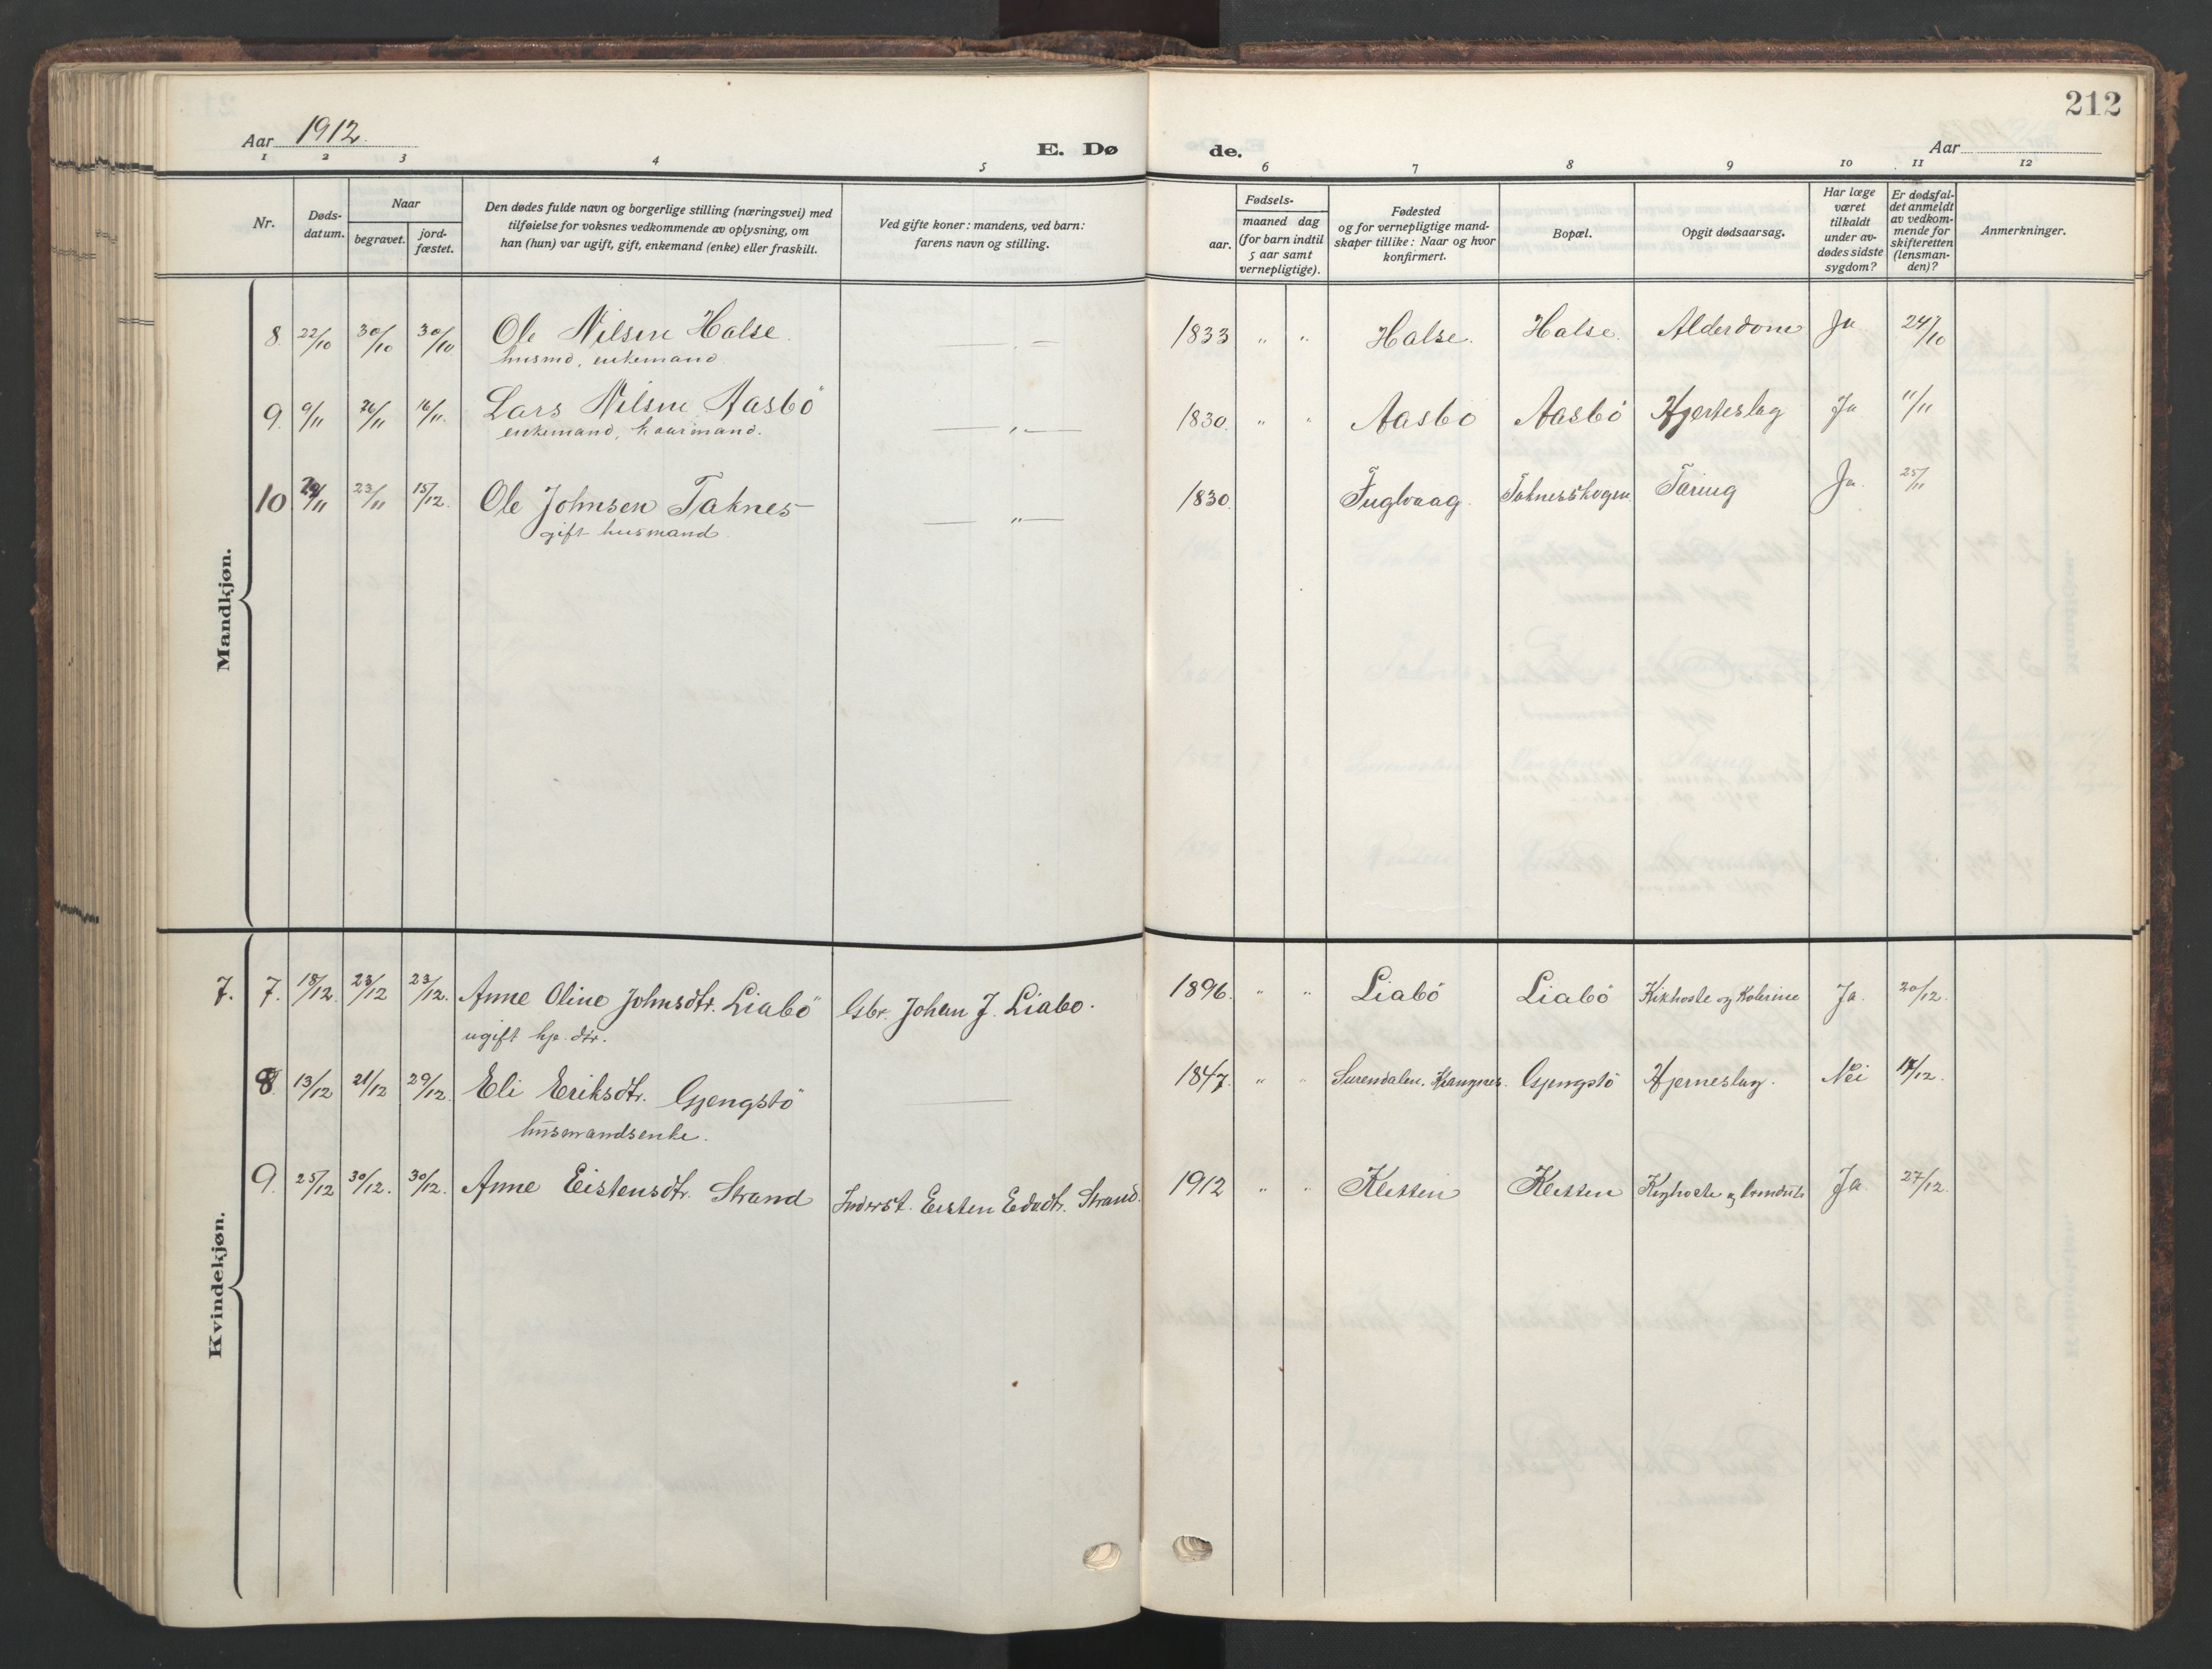 212
Aar 1912.
E. Dø de.
Aar
1 2 3 4 5 6 7 8 9 10 11 12
Nr.
Døds-
datum.
Naar
begravet.
jord-
fæstet.
Den dødes fulde navn og borgerlige stilling (næringsvei) med
tilføielse for voksnes vedkommende av oplysning, om
han (hun) var ugift, gift, enkemand (enke) eller fraskilt.
Ved gifte koner: mandens, ved barn:
farens navn og stilling.
aar.
Fødsels-
maaned dag
(for barn indtil
5 aar samt
vernepligtige).
Fødested
og for vernepligtige mand-
skaper tillike: Naar og hvor
konfirmert.
Bopæl.
Opgit dødsaarsag.
Har læge
været
tilkaldt
under av-
dødes sidste
sygdom?
Er dødsfal-
det anmeldt
av vedkom-
mende for
skifteretten
(lensman-
den)?
Anmerkninger.
Mandkjøn.
8. 22/10 30/10 30/10 Ole Nilsen Halse — „ — 1833 „ „ Halse. Halse. Alderdom Ja 24/10
husmd, enkemand
9. 9/11 16/11 16/11. Lars Nilsen Aasbö — „ — 1830. „ „ Aasbö Aasbö Hjerteslag Ja 11/11
enkemand, kaarmand.
10 23/11 15/12. Ole Johnsen Taknes — „ — 1830. Fuglvaag. Taknesskogen Tæring Ja. 25/11
gift husmand
Kvindekjøn.
7. 7. 18/12. 23/12 23/12. Anne Oline Johnsdtr. Liabö Gbr. Johan J. Liabo. 1896. „ „ Liabö Liabö Kikhoste og Ja. 20/12.
ugift hj. dtr.
8. 13/12 21/12 29/12. Eli Eriksdtr. Gjengstö — 1847. „ „ Surendalen. Gjengstö Hjerneslag. Nei 17/12.
husmandsenke.
9. 25/12 30/12. 30/12. Anne Eistensdtr. Strand Inderst. Eisten Strand. 1912 „ „ Kletten Kletten Kighoste og Ja. 27/12.